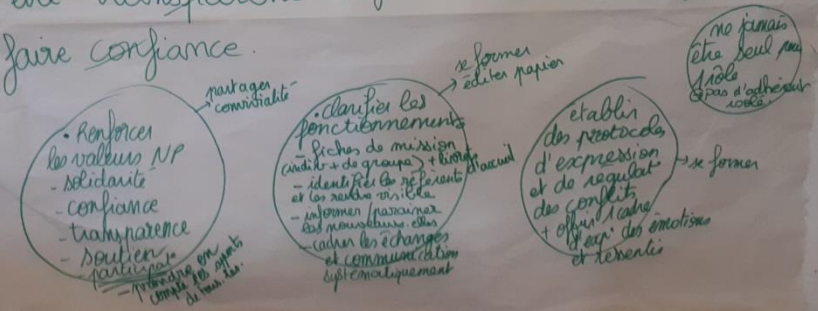 faire confiance.
partager
convivialité
• Renforcer
les valeurs NP
- solidarité
- confiance
- transparence
- soutien
- participat°
- prendre en
compte les
de tous.tes.
se former
éditer papier
• clarifier les
fonctionnements
- fiches de mission
(individ + de groupe) + livret d'accueil
- identifier les référents
et les rendre visible
- informer / parrainer
les nouveaux.elles
- cadrer les échanges
et communication
systématiquement
établir
des protocoles
d'expression
et de régulat°
des conflits
+ offrir 1 cadre
d'exp° des émotions
et ressentis
se former
ne jamais
être seul
rôle
pas d'adhérent
isolé.